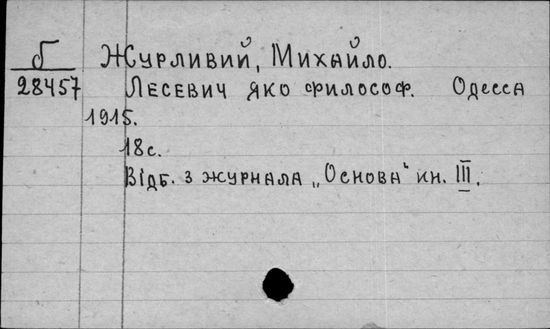 б
28457
Журливий, Михайло.
Лесевич яко философ. Одесса
1915.
18с.
Відб. з журнала „Основа“ кн. III.